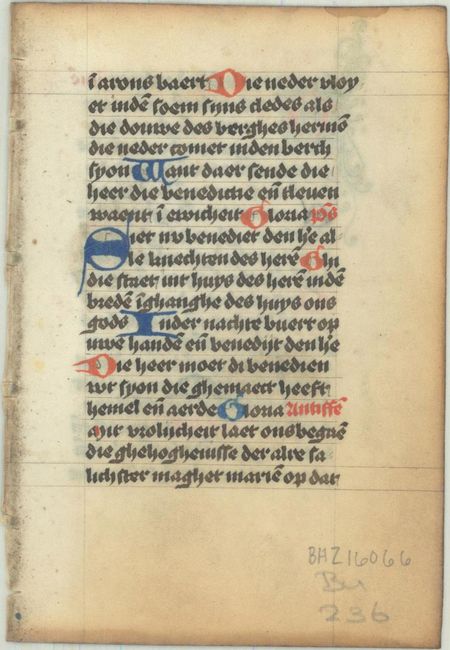 ī arons baert Die neder vloy
et indē soem syns cledes als
die douwe des berghes hermō
die neder comet inden berch
syon Want daer sende die
heer die benedictie eñ dleuen
waent ī ewicheit Gloria ps
Siet nv benediet den hē al
le knechten des herē Ghi
die staet int huys des herē indē
vredē īghanghe des huys ons
gods Inder nachte buert op
uwē handē eñ benedijt den hē
Die heer moet di benedien
wt syon die ghemaect heeft
hemel eñ aerde Gloria Antiffē
Mit vrolijcheit laet ons begaē
die ghehoghenisse der alre sa
lichster maghet mariē op dat
BHZ16066
Bu
236